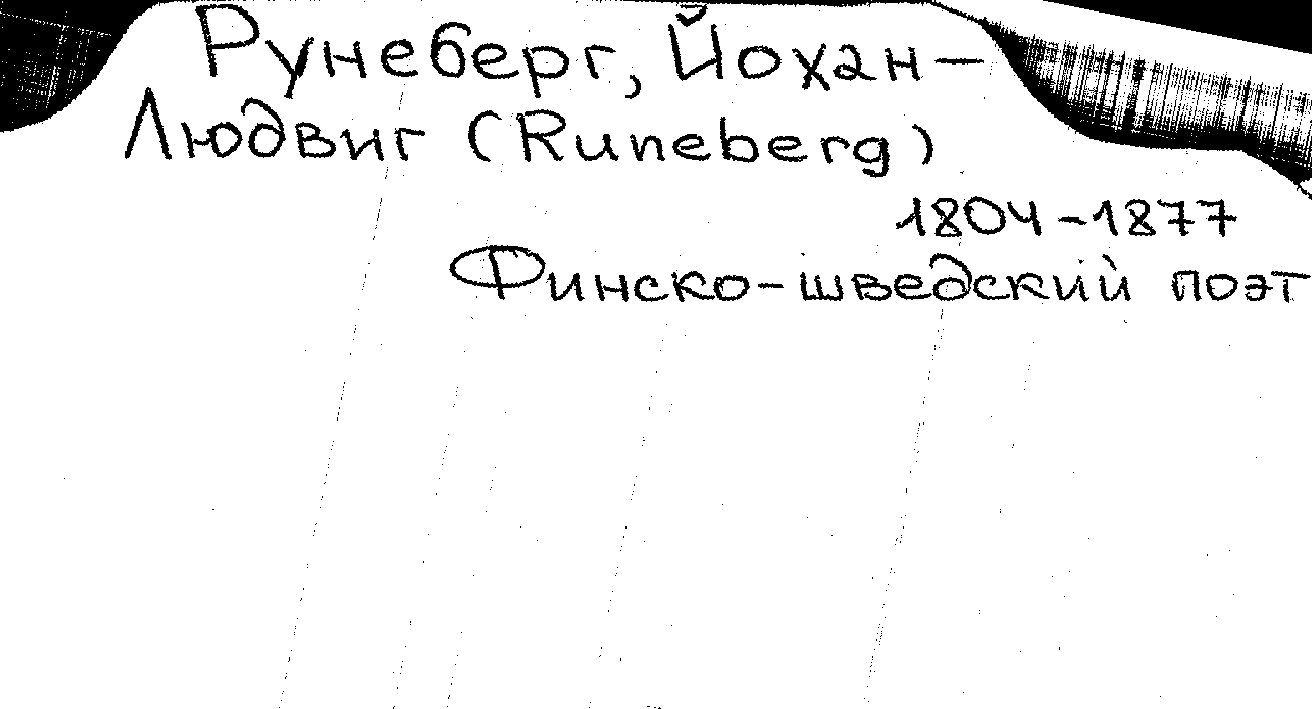 Рунеберг, Йохан-
Людвиг (Runeberg)
1804-1877
Финско-шведский поэт